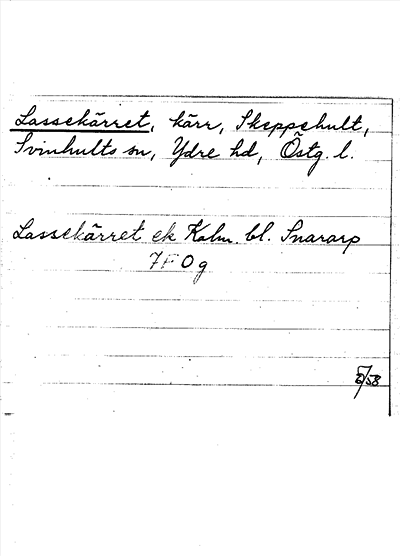 Lassekärret, kärr, Skeppehult,
Svinhults sn, Ydre hd, Östg. l.
Lassekärret ek Kalm. bl. Snararp
7F 0g